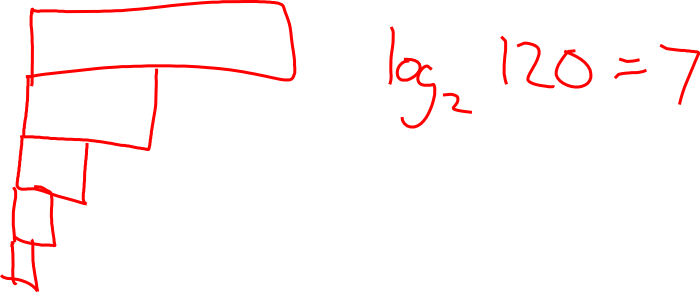 log₂ 120 = 7